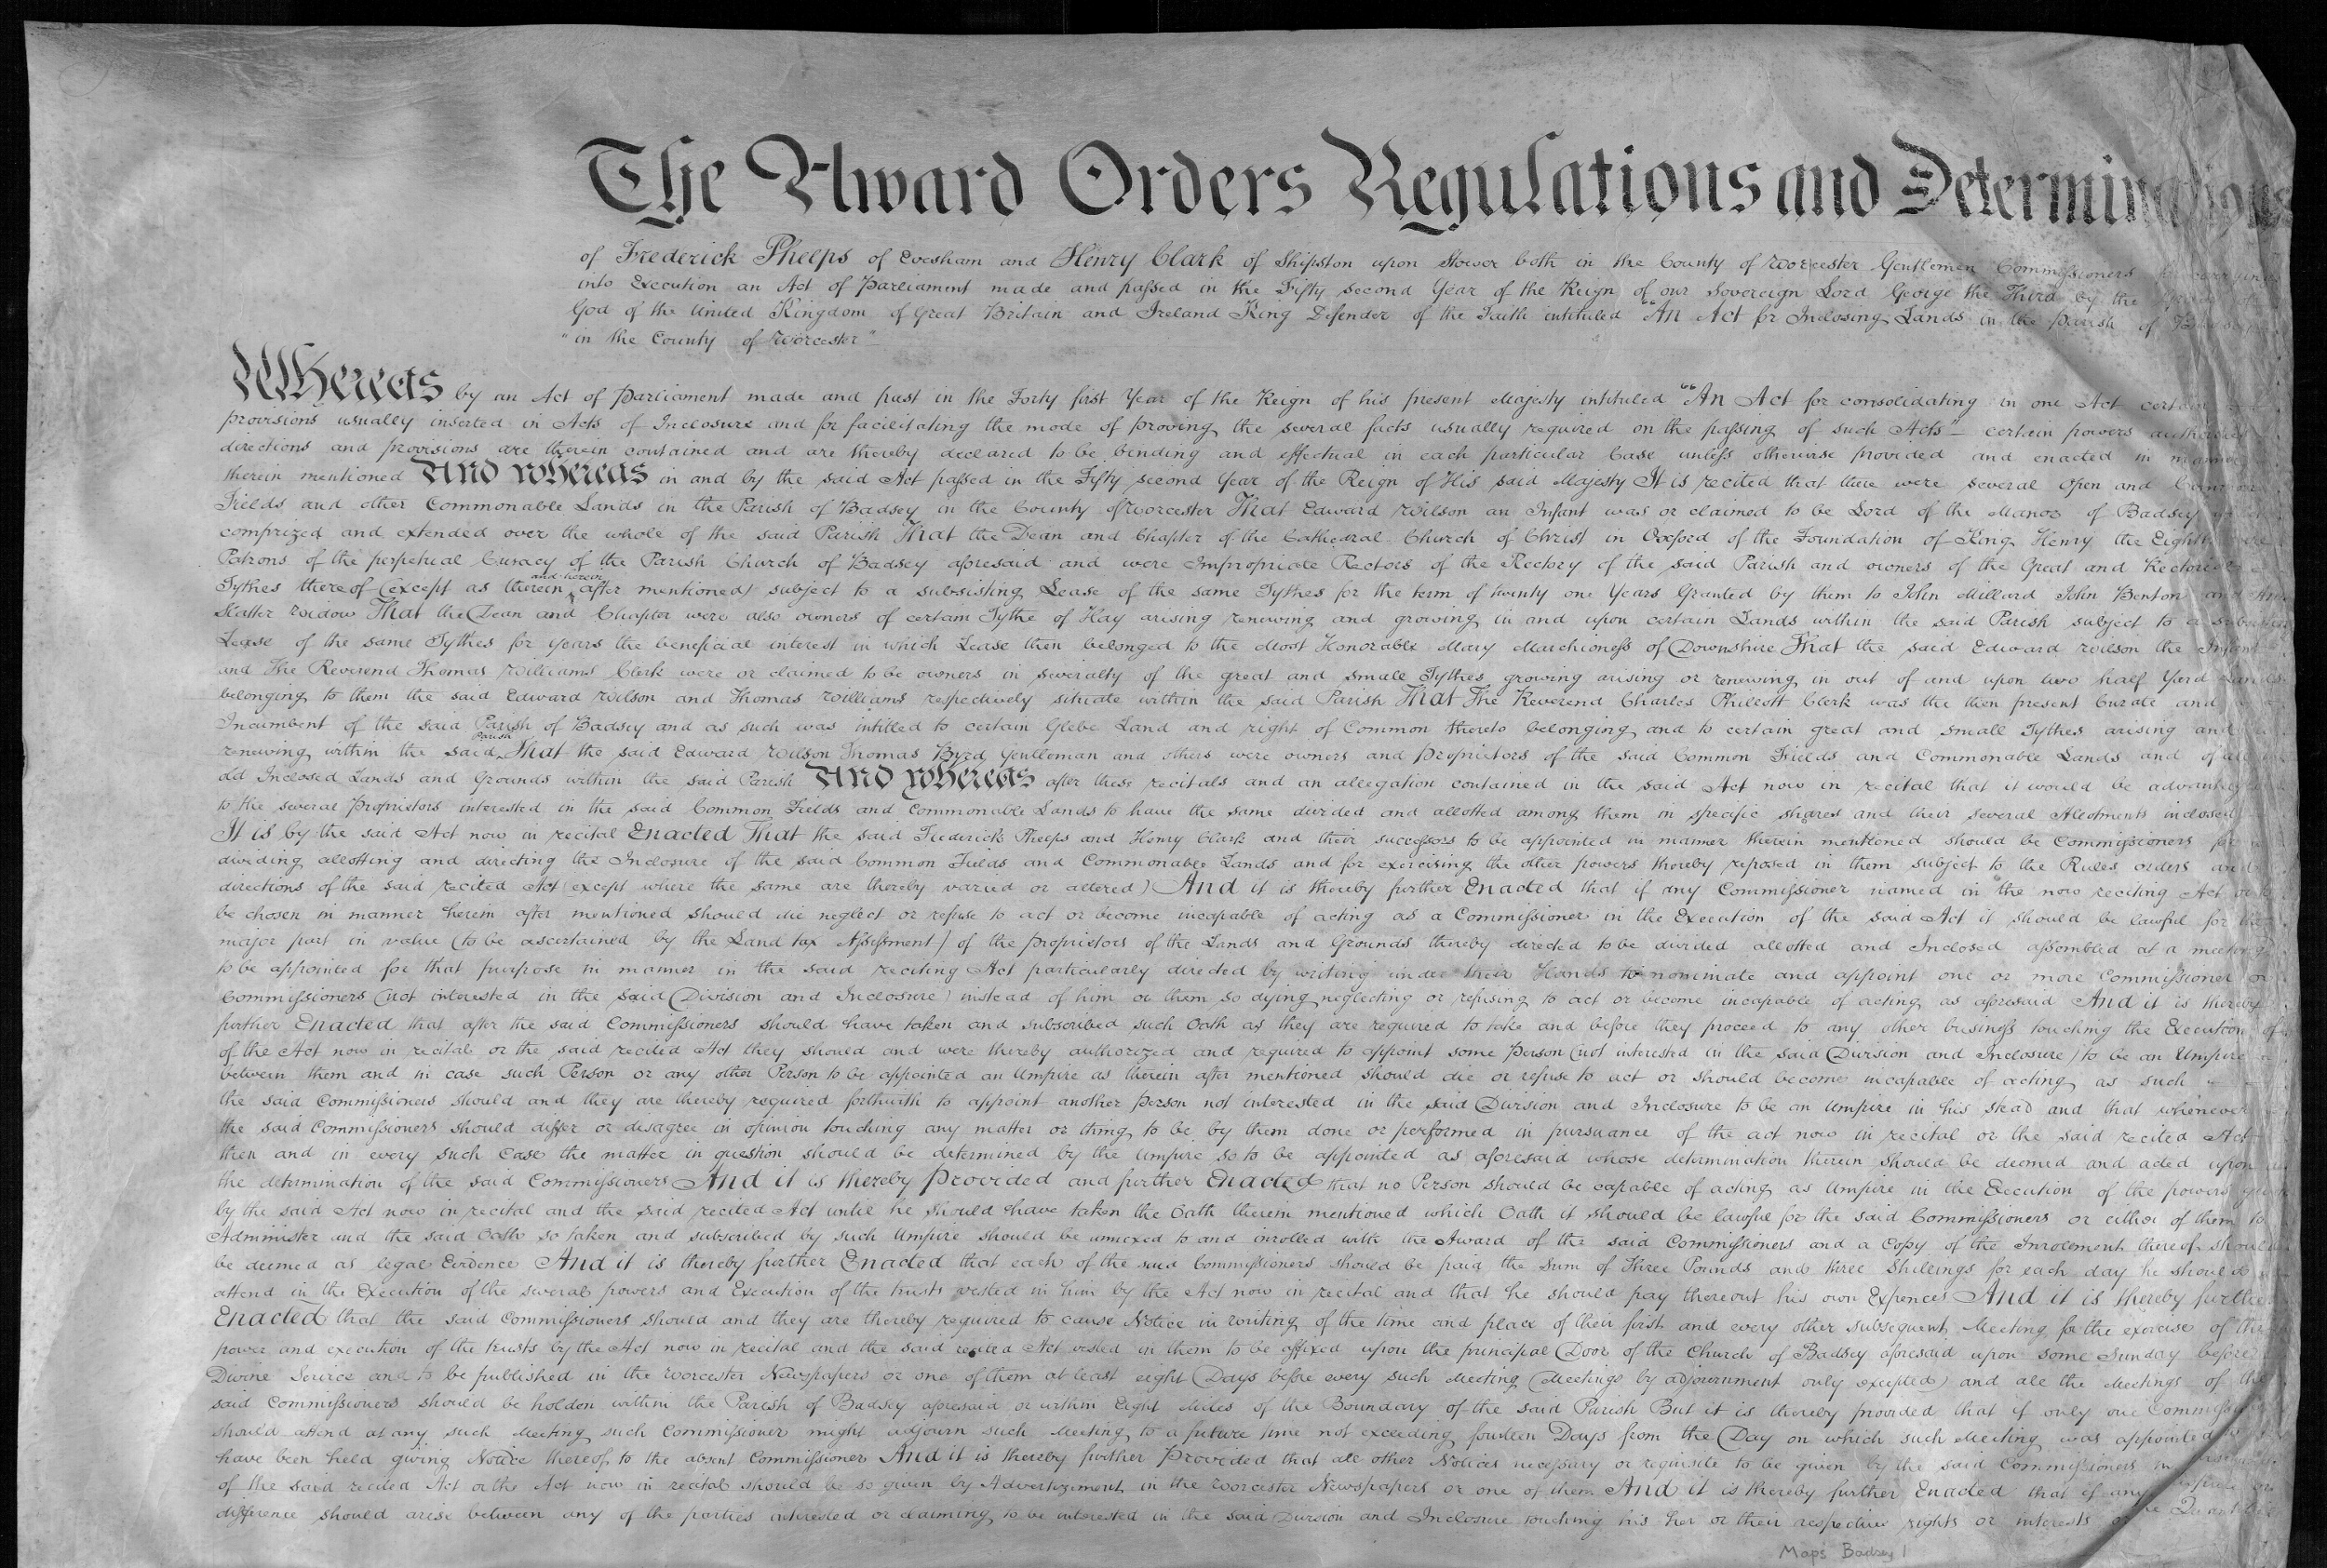 The Award Orders Regulations and Determinations
of Frederick Phelps of Evesham and Henry Clark of Shipston upon Stower both in the County of Worcester Gentlemen Commissioners for carrying
into Execution an Act of Parliament made and passed in the Fifty second Year of the Reign of our Sovereign Lord George the Third by the Grace of
God of the United Kingdom of Great Britain and Ireland King Defender of the Faith intituled "An Act for Inclosing Lands in the Parish of Badsey
"in the County of Worcester"
Whereas by an Act of Parliament made and past in the Forty first Year of the Reign of his present Majesty intituled "An Act for consolidating in one Act certain
provisions usually inserted in Acts of Inclosure and for facilitating the mode of proving the several facts usually required on the passing of such Acts" certain powers authorities
directions and provisions are therein contained and are thereby declared to be binding and effectual in each particular Case unless otherwise provided and enacted in manner
therein mentioned And Whereas in and by the said Act passed in the Fifty second Year of the Reign of His said Majesty It is recited that there were several Open and Common
Fields and other Commonable Lands in the Parish of Badsey in the County of Worcester That Edward Wilson an Infant was or claimed to be Lord of the Manor of Badsey
comprized and extended over the whole of the said Parish That the Dean and Chapter of the Cathedral Church of Christ in Oxford of the Foundation of King Henry the Eighth were
Patrons of the perpetual Curacy of the Parish Church of Badsey aforesaid and were Impropriate Rectors of the Rectory of the said Parish and owners of the Great and Rectorial
Tythes thereof (except as therein and herein after mentioned) subject to a subsisting Lease of the same Tythes for the term of twenty one Years Granted by them to John Millard John Benton and Ann
Slatter Widow That the Dean and Chapter were also owners of certain Tythe of Hay arising renewing and growing in and upon certain Lands within the said Parish subject to a subsisting
Lease of the same Tythes for years the beneficial interest in which Lease then belonged to the Most Honorable Mary Marchioness of Downshire That the said Edward Wilson the Infant
and The Reverend Thomas Williams Clerk were or claimed to be owners in severalty of the great and small Tythes growing arising or renewing in out of and upon two half Yard Lands
belonging to them the said Edward Wilson and Thomas Williams respectively situate within the said Parish That The Reverend Charles Philcott Clerk was the then present Curate and
Incumbent of the said Parish of Badsey and as such was intitled to certain Glebe Land and right of Common thereto belonging and to certain great and small Tythes arising and
renewing within the said Parish That the said Edward Wilson Thomas Byrd Gentleman and others were owners and Proprietors of the said Common Fields and Commonable Lands and of all
old Inclosed Lands and Grounds within the said Parish And Whereas after these recitals and an allegation contained in the said Act now in recital that it would be advantageous
to the several Proprietors interested in the said Common Fields and Commonable Lands to have the same divided and allotted among them in specific shares and their several Allotments inclosed
It is by the said Act now in recital Enacted That the said Frederick Phelps and Henry Clark and their successors to be appointed in manner therein mentioned should be Commissioners for
dividing allotting and directing the Inclosure of the said Common Fields and Commonable Lands and for exercising the other powers thereby reposed in them subject to the Rules orders and
directions of the said recited Act (except where the same are thereby varied or altered) And it is thereby further Enacted that if any Commissioner named in the now reciting Act or to
be chosen in manner herein after mentioned should die neglect or refuse to act or become incapable of acting as a Commissioner in the Execution of the said Act it should be lawful for the
major part in value (to be ascertained by the Land tax Assessment) of the Proprietors of the Lands and Grounds thereby directed to be divided allotted and Inclosed assembled at a meeting
to be appointed for that purpose in manner in the said reciting Act particularly directed by writing under their Hands to nominate and appoint one or more Commissioner or
Commissioners (not interested in the said Division and Inclosure) instead of him or them so dying neglecting or refusing to act or become incapable of acting as aforesaid And it is thereby
further Enacted that after the said Commissioners should have taken and subscribed such Oath as they are required to take and before they proceed to any other business touching the Execution of
of the Act now in recital or the said recited Act they should and were thereby authorized and required to appoint some Person (not interested in the said Division and Inclosure) to be an Umpire
between them and in case such Person or any other Person to be appointed an Umpire as therein after mentioned should die or refuse to act or should become incapable of acting as such
the said Commissioners should and they are thereby required forthwith to appoint another Person not interested in the said Division and Inclosure to be an Umpire in his stead and that whenever
the said Commissioners should differ or disagree in opinion touching any matter or thing to be by them done or performed in pursuance of the act now in recital or the said recited Act
then and in every such Case the matter in question should be determined by the Umpire so to be appointed as aforesaid whose determination therein should be deemed and acted upon as
the determination of the said Commissioners And it is thereby Provided and further Enacted that no Person should be capable of acting as Umpire in the Execution of the powers given
by the said Act now in recital and the said recited Act until he should have taken the Oath therein mentioned which Oath it should be lawful for the said Commissioners or either of them to
Administer and the said Oath so taken and subscribed by such Umpire should be annexed to and inrolled with the Award of the said Commissioners and a Copy of the Inrolment thereof should
be deemed as legal Evidence And it is thereby further Enacted that each of the said Commissioners should be paid the Sum of Three Pounds and three Shillings for each day he should
attend in the Execution of the several powers and Execution of the trusts vested in him by the Act now in recital and that he should pay thereout his own Expences And it is thereby further
Enacted that the said Commissioners should and they are thereby required to cause Notice in writing of the time and place of their first and every other subsequent Meeting for the exercise of the
power and execution of the trusts by the Act now in recital and the said recited Act vested in them to be affixed upon the principal Door of the Church of Badsey aforesaid upon some Sunday before
Divine Service and to be published in the Worcester Newspapers or one of them at least eight Days before every such Meeting (Meetings by adjournment only excepted) and all the Meetings of the
said Commissioners should be holden within the Parish of Badsey aforesaid or within Eight Miles of the Boundary of the said Parish But it is thereby provided that if only one Commissioner
should attend at any such Meeting such Commissioner might adjourn such Meeting to a future time not exceeding fourteen Days from the Day on which such Meeting was appointed to
have been held giving Notice thereof to the absent Commissioner And it is thereby further Provided that all other Notices necessary or requisite to be given by the said Commissioners in pursuance
of the said recited Act or the Act now in recital should be so given by Advertizement in the Worcester Newspapers or one of them And it is thereby further Enacted that if any dispute or
difference should arise between any of the parties interested or claiming to be interested in the said Division and Inclosure touching his her or their respective rights or interests or the Quantities
Maps Badsey 1